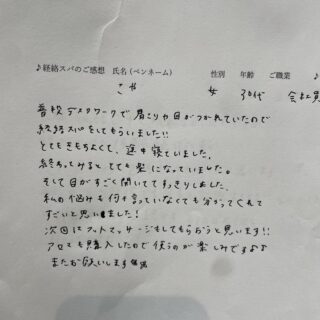 ♪経絡スパのご感想 氏名(ペンネーム) 性別 年齢 ご職業 ♪
こや 女 30代 会社員
普段デスクワークで肩こりや目がつかれていたので
経絡スパをしてもらいました!!
とてもきもちよくて、途中寝ていました。
終わってみるととても楽になっていました。
そして目がすごく開いててすっきりしました。
私の悩みも何も言っていなくても分かってくれて
すごいと思いました!
次回はフットマッサージもしてもらおうと思います!!
アロマも購入したので使うのが楽しみです♪♪
またお願いします